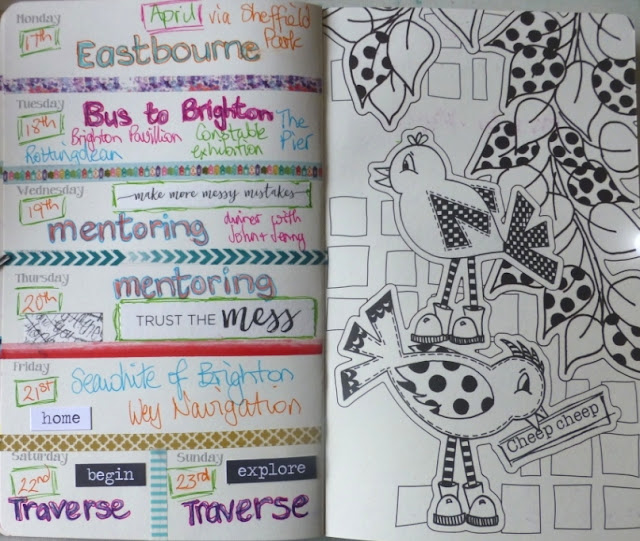 Monday
17th
April via Sheffield
Park
Eastbourne
Tuesday
18th
Bus to Brighton
Brighton Pavillion
Constable
exhibition
The
Pier
Rottingdean
Wednesday
19th
make more messy mistakes
mentoring
dinner with
John + Jenny
Thursday
20th
mentoring
TRUST THE mess
Friday
21st
Seawhite of Brighton
Wey Navigation
home
Saturday
22nd
begin
Traverse
Sunday
23rd
explore
Traverse
Cheep cheep